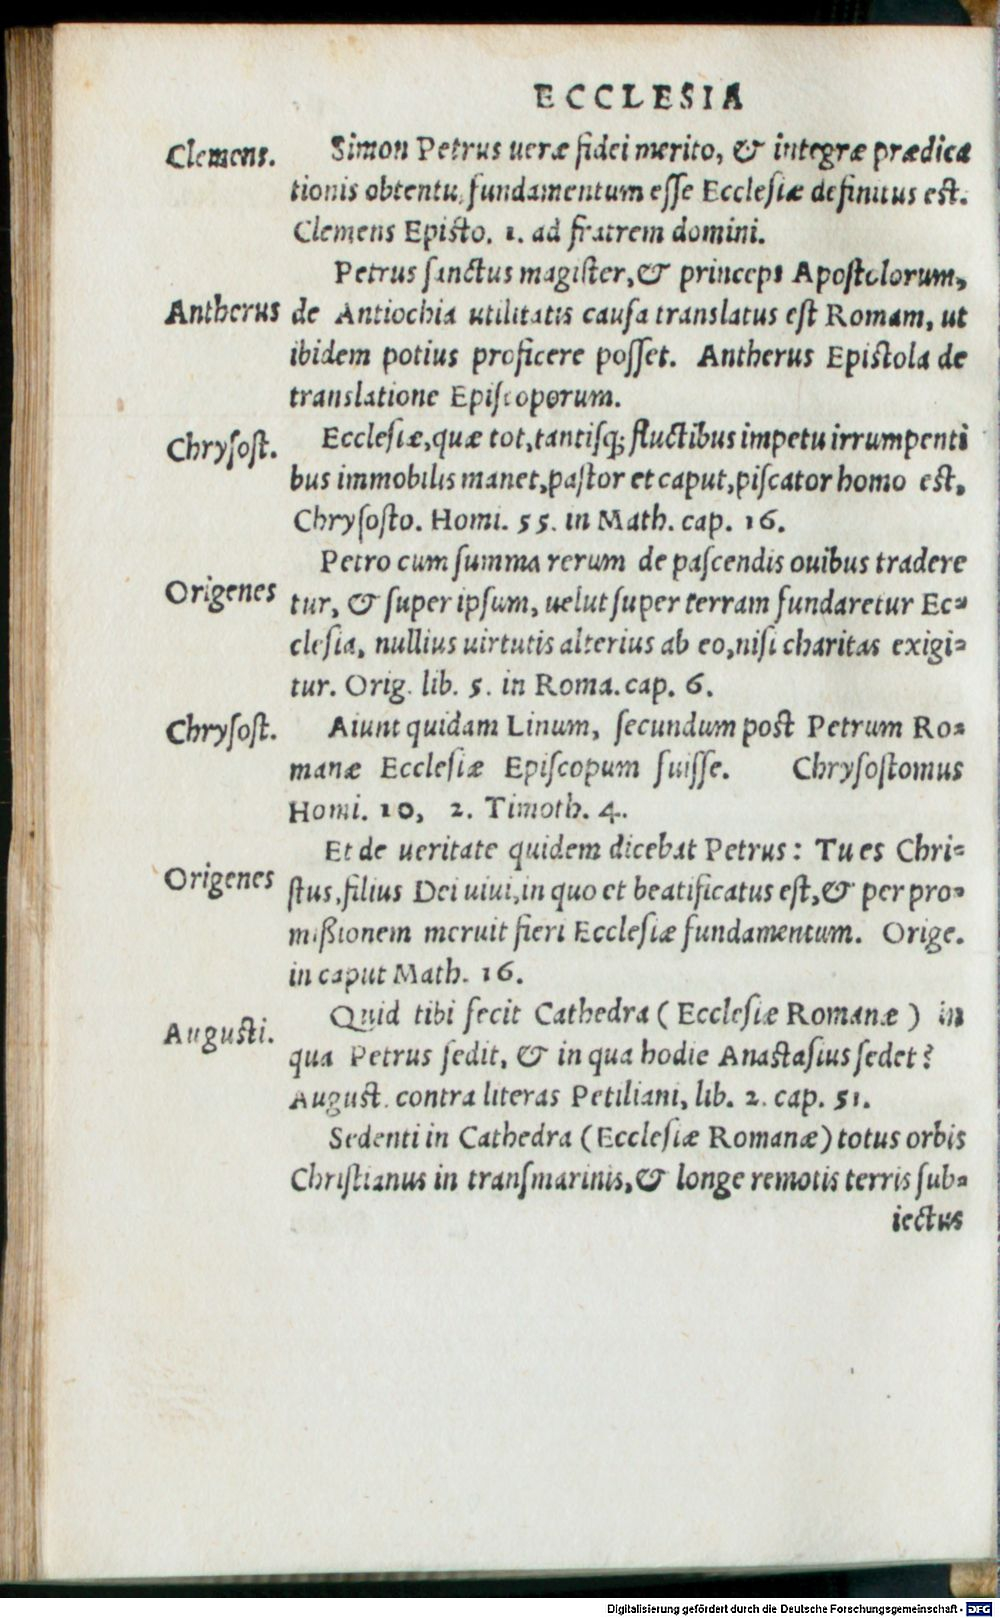 ECCLESIA
Clemens. Simon Petrus ueræ fidei merito, & integræ prædica
tionis obtentu, fundamentum esse Ecclesiæ definitus est.
Clemens Episto. 1. ad fratrem domini.
Petrus sanctus magister, & princeps Apostolorum,
Antherus de Antiochia utilitatis causa translatus est Romam, ut
ibidem potius proficere posset. Antherus Epistola de
translatione Episcoporum.
Chrysost. Ecclesiæ, quæ tot, tantisq; fluctibus impetu irrumpenti
bus immobilis manet, pastor et caput, piscator homo est,
Chrysosto. Homi. 55. in Math. cap. 16.
Petro cum summa rerum de pascendis ouibus tradere
Origenes tur, & super ipsum, uelut super terram fundaretur Ec=
clesia, nullius uirtutis alterius ab eo, nisi charitas exigi=
tur. Orig. lib. 5. in Roma. cap. 6.
Chrysost. Aiunt quidam Linum, secundum post Petrum Ro=
manæ Ecclesiæ Episcopum fuisse. Chrysostomus
Homi. 10, 2. Timoth. 4.
Et de ueritate quidem dicebat Petrus: Tu es Chri=
Origenes stus, filius Dei uiui, in quo et beatificatus est, & per pro=
mißionem meruit fieri Ecclesiæ fundamentum. Orige.
in caput Math. 16.
Augusti. Quid tibi fecit Cathedra (Ecclesiæ Romanæ) in
qua Petrus sedit, & in qua hodie Anastasius sedet?
August. contra literas Petiliani, lib. 2. cap. 51.
Sedenti in Cathedra (Ecclesiæ Romanæ) totus orbis
Christianus in transmarinis, & longe remotis terris sub=
iectus
Digitalisierung gefördert durch die Deutsche Forschungsgemeinschaft - DFG